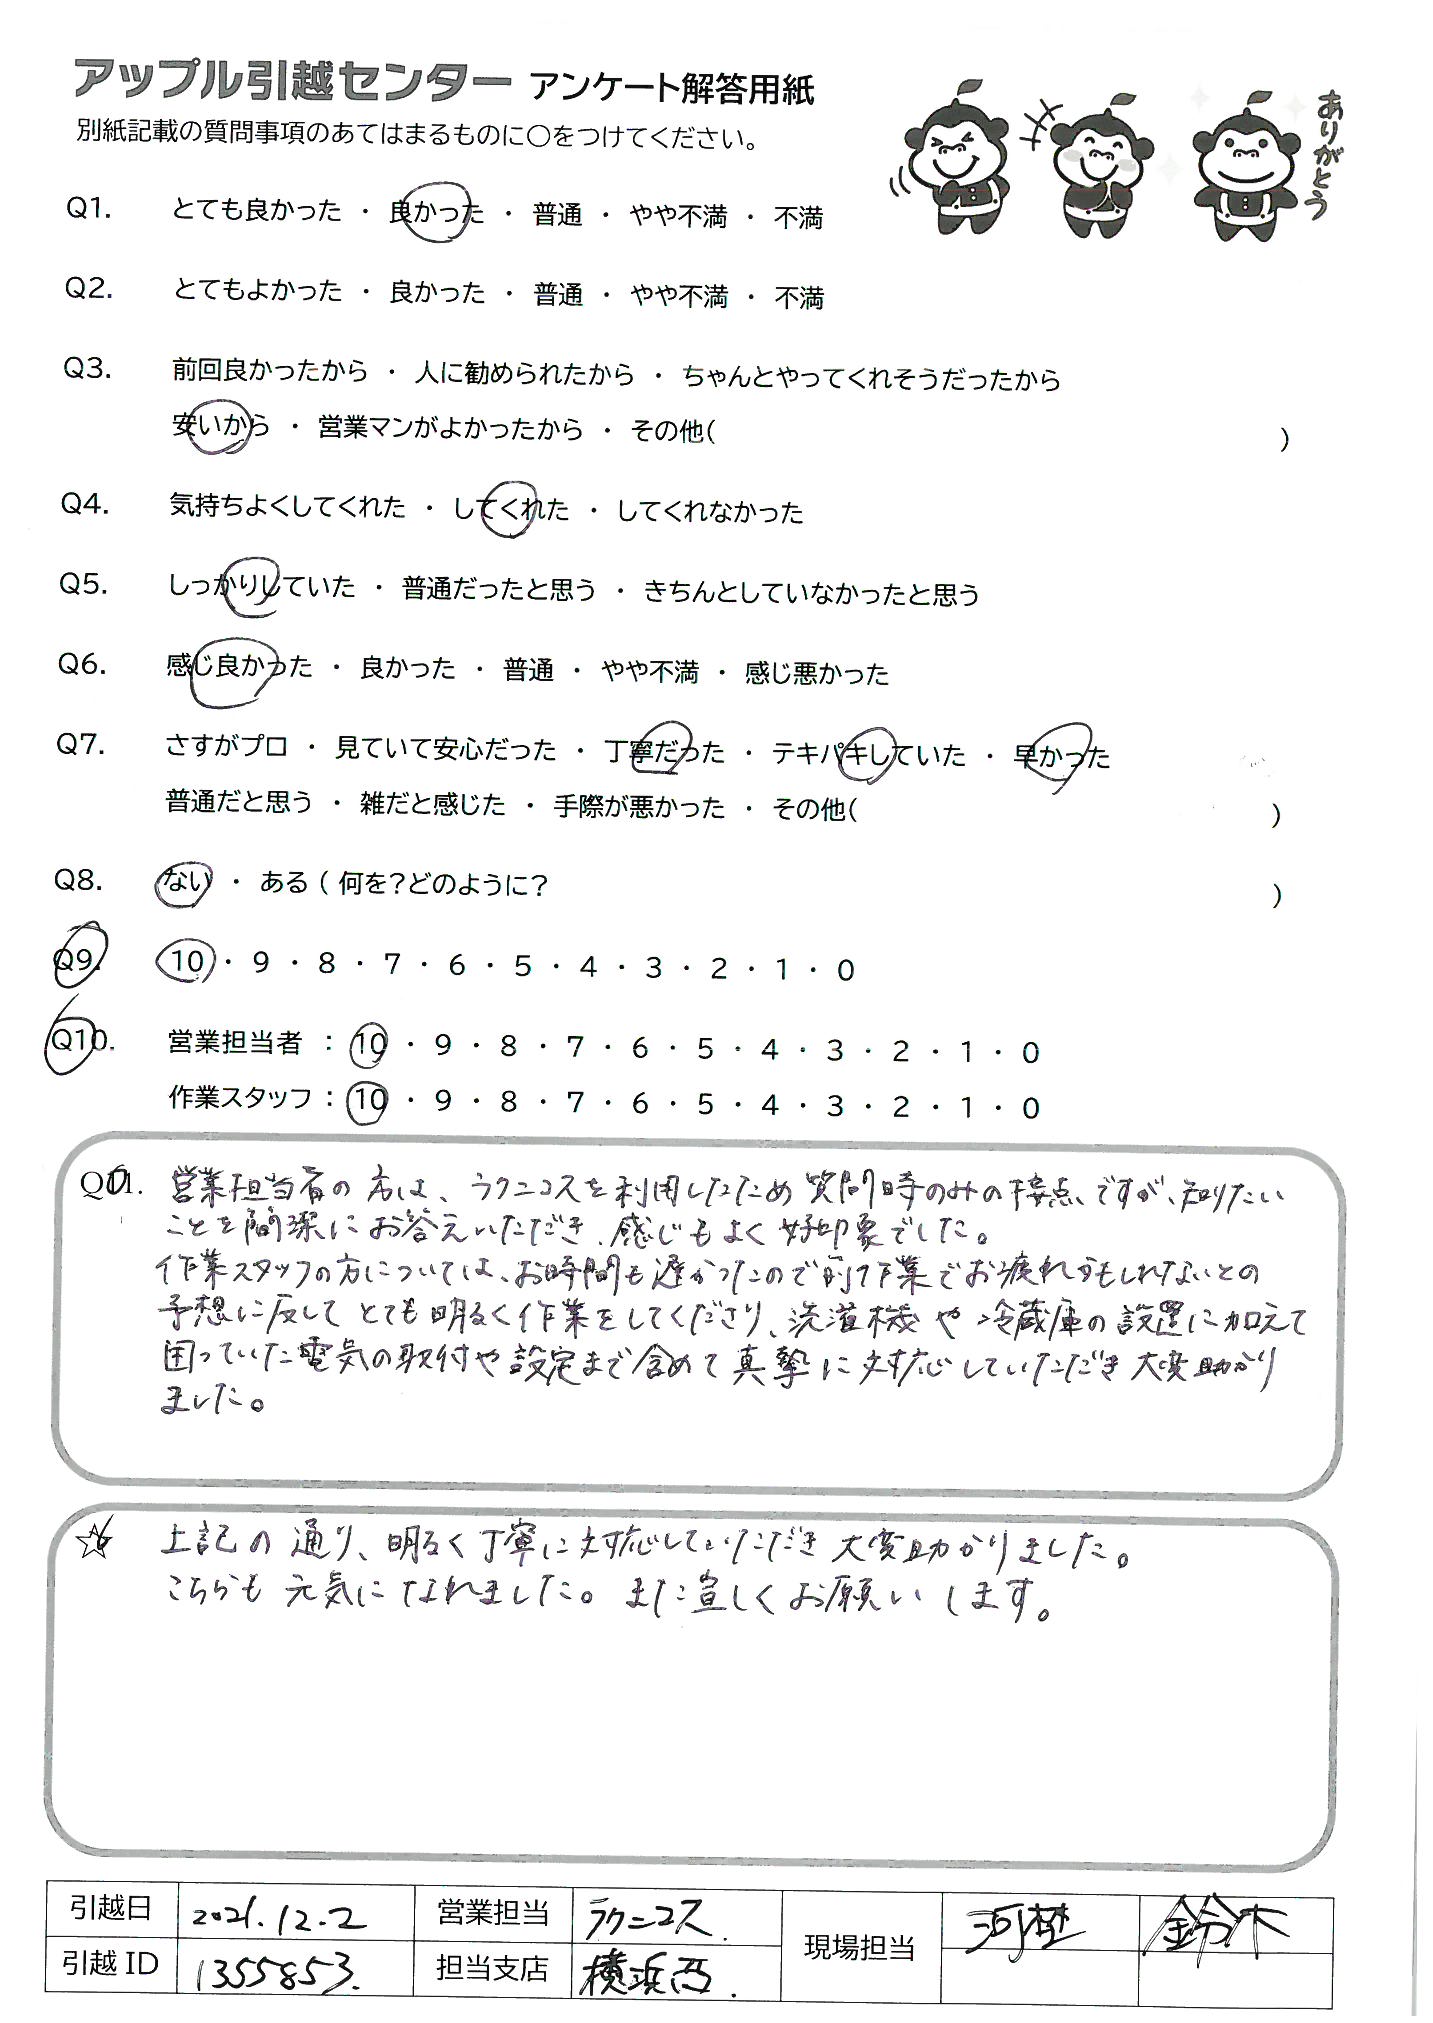 アップル引越センター アンケート解答用紙
別紙記載の質問事項のあてはまるものに〇をつけてください。
ありがとう
Q1. とても良かった ・ 良かった ・ 普通 ・ やや不満 ・ 不満
Q2. とてもよかった ・ 良かった ・ 普通 ・ やや不満 ・ 不満
Q3. 前回良かったから ・ 人に勧められたから ・ ちゃんとやってくれそうだったから
安いから ・ 営業マンがよかったから ・ その他( )
Q4. 気持ちよくしてくれた ・ してくれた ・ してくれなかった
Q5. しっかりしていた ・ 普通だったと思う ・ きちんとしていなかったと思う
Q6. 感じ良かった ・ 良かった ・ 普通 ・ やや不満 ・ 感じ悪かった
Q7. さすがプロ ・ 見ていて安心だった ・ 丁寧だった ・ テキパキしていた ・ 早かった
普通だと思う ・ 雑だと感じた ・ 手際が悪かった ・ その他( )
Q8. ない ・ ある ( 何を?どのように? )
Q9. 10 ・ 9 ・ 8 ・ 7 ・ 6 ・ 5 ・ 4 ・ 3 ・ 2 ・ 1 ・ 0
Q10. 営業担当者 : 10 ・ 9 ・ 8 ・ 7 ・ 6 ・ 5 ・ 4 ・ 3 ・ 2 ・ 1 ・ 0
作業スタッフ : 10 ・ 9 ・ 8 ・ 7 ・ 6 ・ 5 ・ 4 ・ 3 ・ 2 ・ 1 ・ 0
Q11. 営業担当者の方は、ラクニコスを利用したため質問時のみの接点ですが、知りたい
ことを簡潔にお答えいただき、感じもよく好印象でした。
作業スタッフの方については、お時間も遅かったので前作業でお疲れかもしれないとの
予想に反してとても明るく作業をしてくださり、洗濯機や冷蔵庫の設置に加えて
困っていた電気の取付や設定まで含めて真摯に対応していただき大変助かり
ました。
☆ 上記の通り、明るく丁寧に対応していただき大変助かりました。
こちらも元気になれました。また宜しくお願いします。
引越日 2021.12.2 営業担当 ラクニコス. 現場担当 河 鈴木
引越ID 1355853. 担当支店 横浜西.